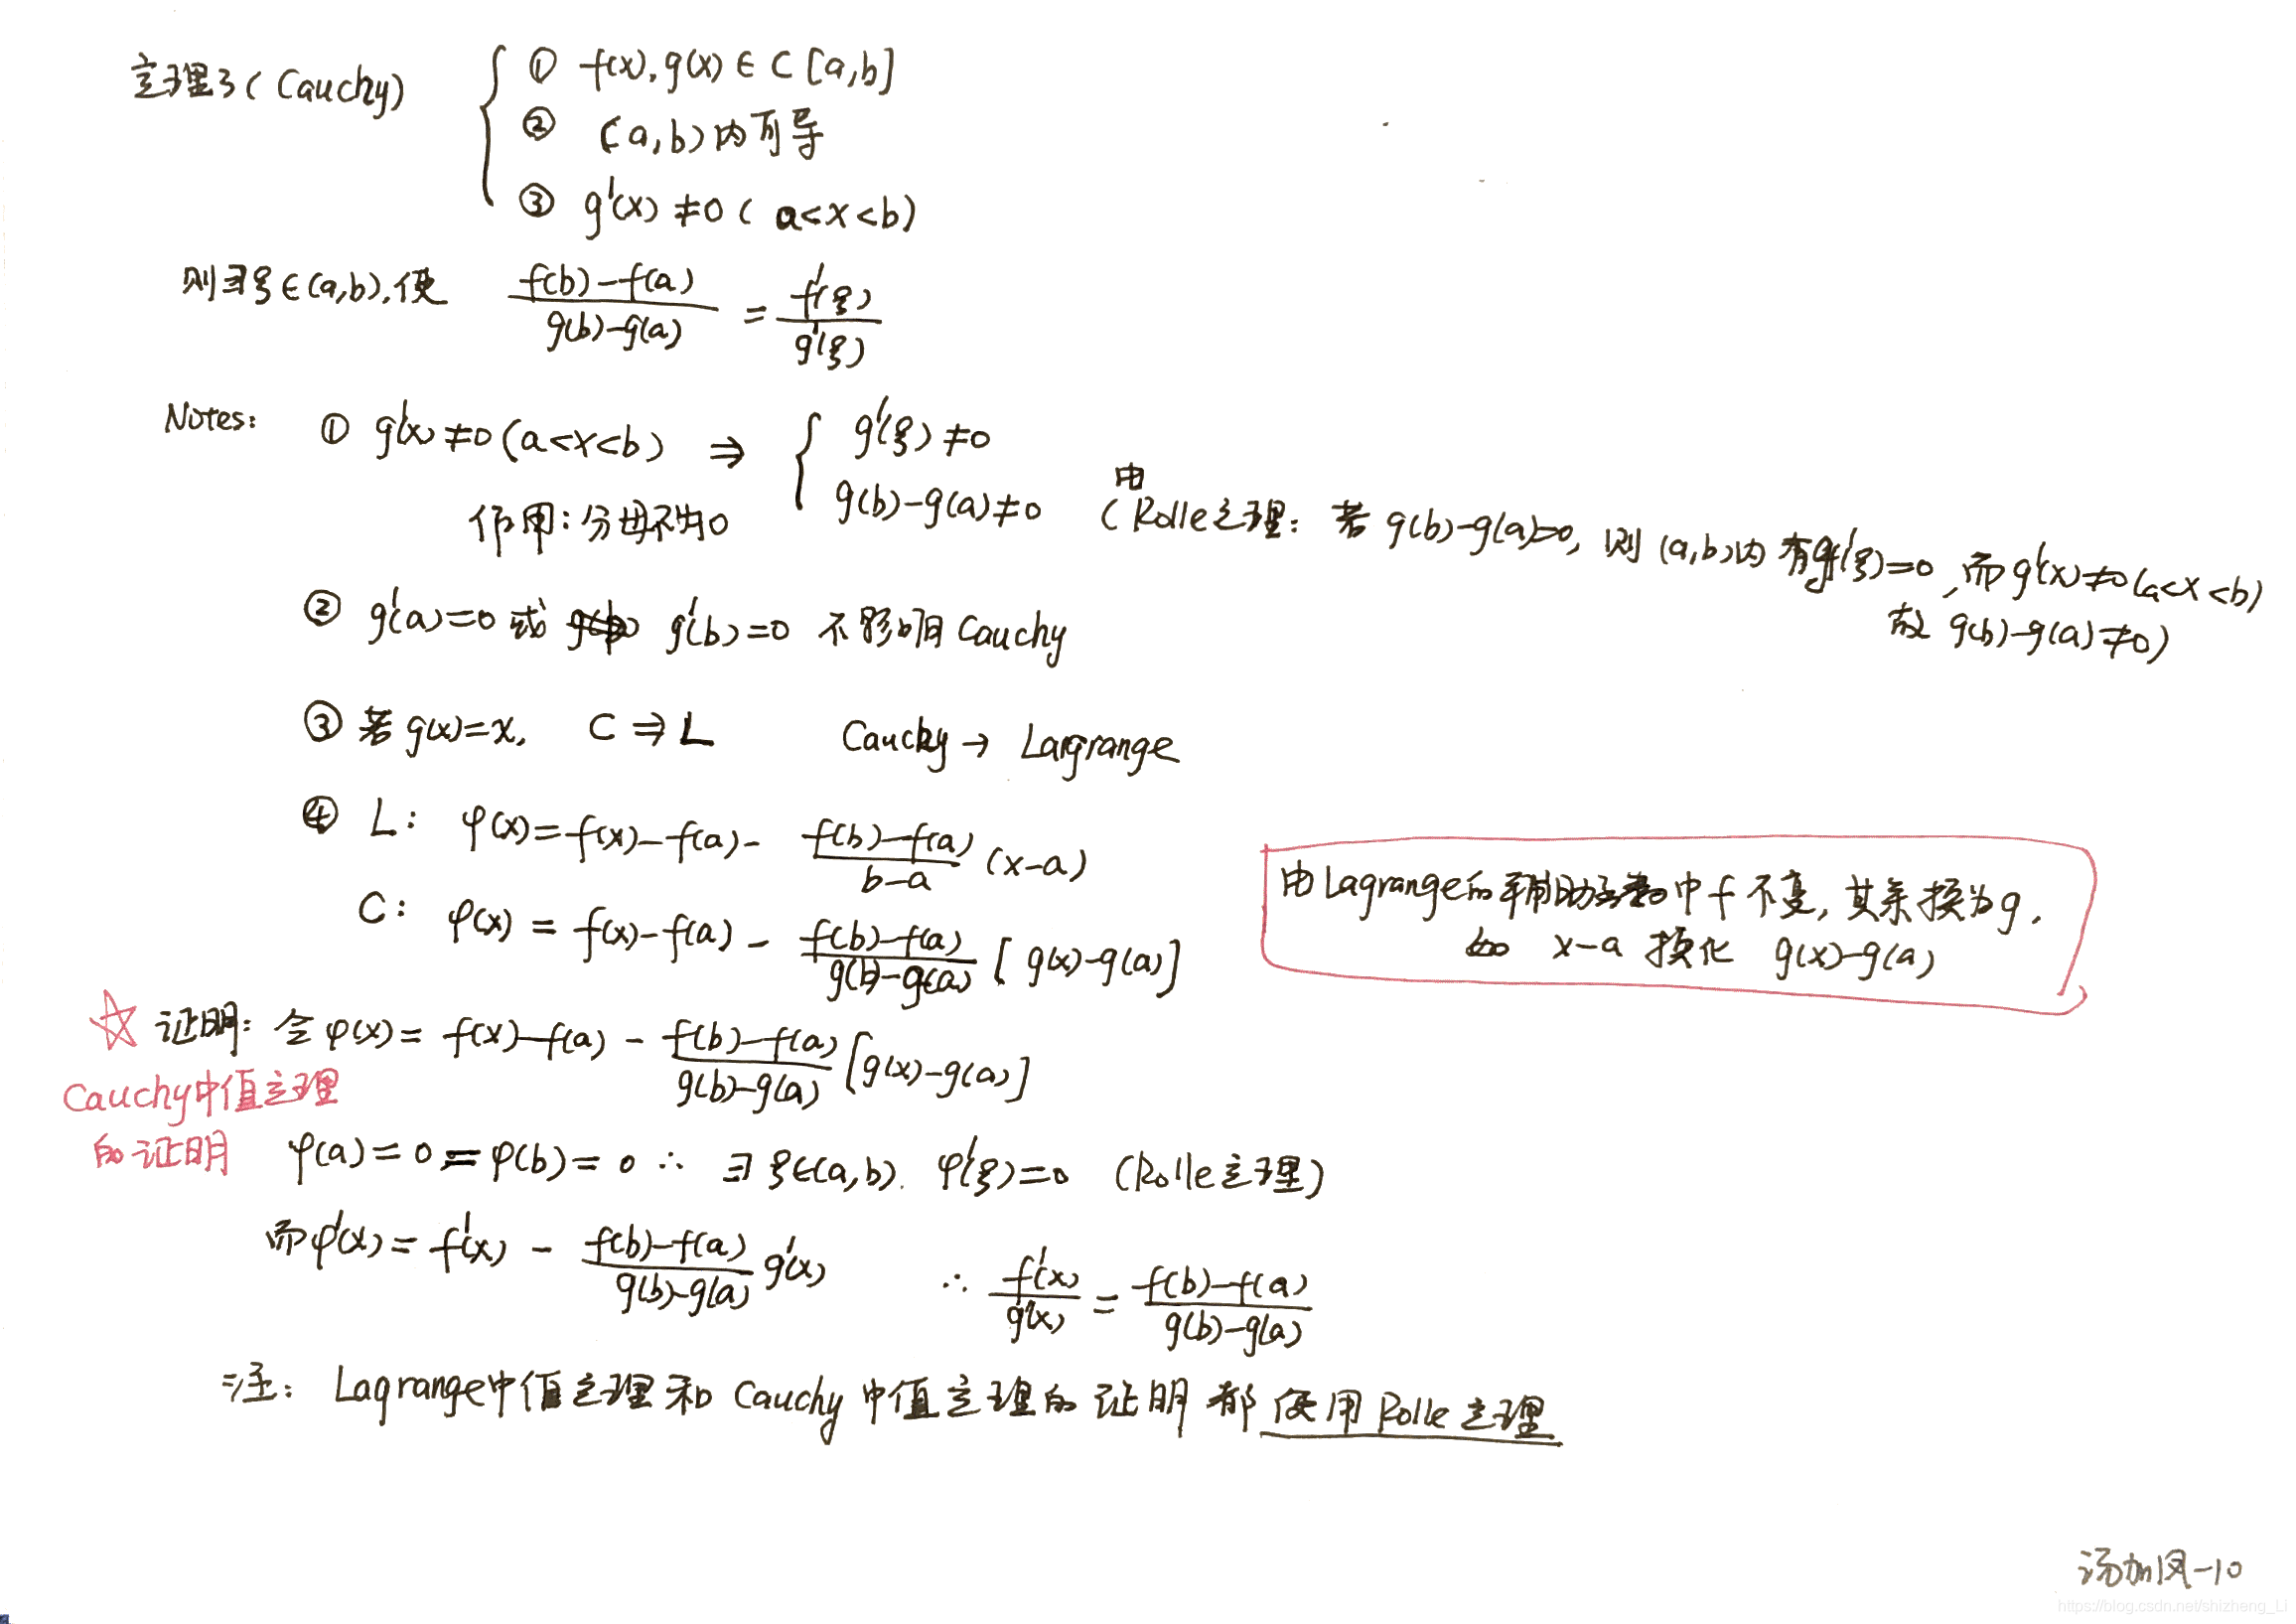 定理3 (Cauchy) { ① f(x), g(x) ∈ C[a,b]
② (a,b)内可导
③ g'(x) ≠ 0 ( a<x<b)
则∃ξ∈(a,b),使 \frac{f(b)-f(a)}{g(b)-g(a)} = \frac{f'(ξ)}{g'(ξ)}
Notes: ① g'(x) ≠ 0 (a<x<b) ⇒ { g'(ξ) ≠ 0
作用: 分母不为0 g(b)-g(a) ≠ 0 (由Rolle定理: 若 g(b)-g(a)=0, 则 (a,b)内有g'(ξ)=0, 而g'(x)≠0(a<x<b)
故 g(b)-g(a)≠0)
② g'(a)=0 或 g'(b)=0 不影响 Cauchy
③ 若 g(x)=x, C ⇒ L Cauchy → Largrange
④ L: φ(x)=f(x)-f(a)- \frac{f(b)-f(a)}{b-a} (x-a)
C: φ(x) = f(x)-f(a) - \frac{f(b)-f(a)}{g(b)-g(a)} [ g(x)-g(a)]
由Lagrange的辅助函数中f不变, 其余换为g,
如 x-a 换化 g(x)-g(a)
☆ 证明: 令φ(x)= f(x)-f(a) - \frac{f(b)-f(a)}{g(b)-g(a)} [g(x)-g(a)]
Cauchy中值定理
的证明
φ(a)=0=φ(b)=0 ∴ ∃ξ∈(a,b). φ'(ξ)=0 (Rolle定理)
而φ'(x)= f'(x) - \frac{f(b)-f(a)}{g(b)-g(a)} g'(x) ∴ \frac{f'(x)}{g'(x)} = \frac{f(b)-f(a)}{g(b)-g(a)}
注: Lagrange中值定理和 Cauchy 中值定理的证明都使用Rolle定理
汤加凤-10
https://blog.csdn.net/shizheng_Li